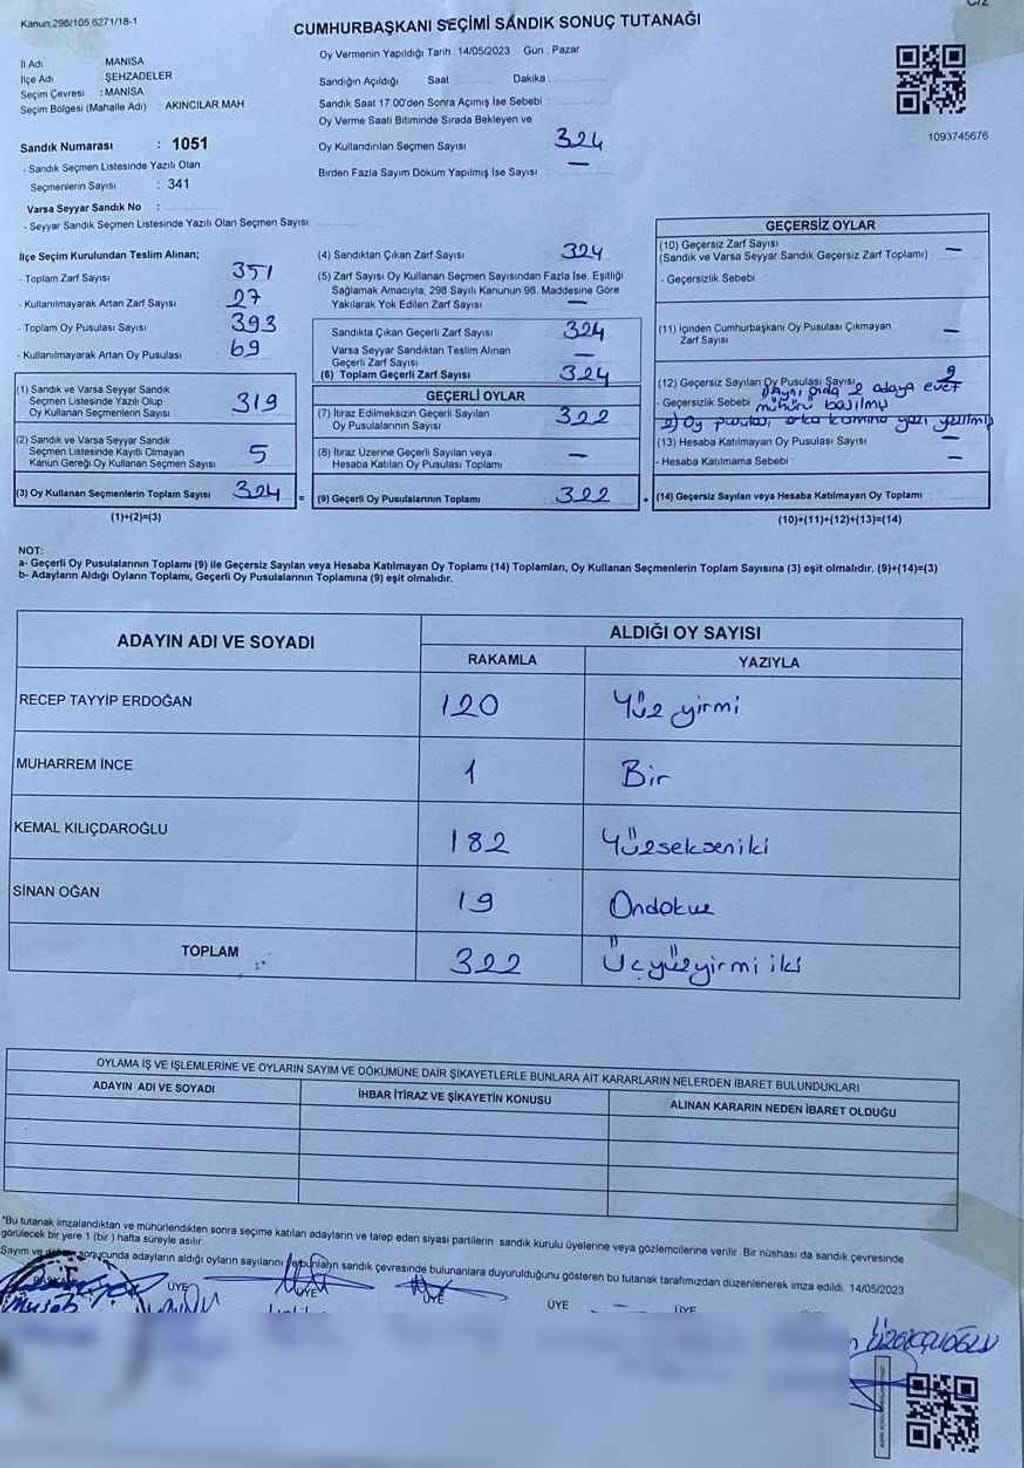 Kanun:298/105,6271/18-1
CUMHURBAŞKANI SEÇİMİ SANDIK SONUÇ TUTANAĞI
İl Adı MANİSA
İlçe Adı ŞEHZADELER
Seçim Çevresi : MANİSA
Seçim Bölgesi (Mahalle Adı) AKINCILAR MAH
Sandık Numarası : 1051
- Sandık Seçmen Listesinde Yazılı Olan
Seçmenlerin Sayısı : 341
Varsa Seyyar Sandık No :
- Seyyar Sandık Seçmen Listesinde Yazılı Olan Seçmen Sayısı
Oy Vermenin Yapıldığı Tarih 14/05/2023 Gün : Pazar
Sandığın Açıldığı Saat Dakika
Sandık Saat 17 00'den Sonra Açımış İse Sebebi
Oy Verme Saati Bitiminde Sırada Bekleyen ve
Oy Kullandırılan Seçmen Sayısı 324
Birden Fazla Sayım Döküm Yapılmış İse Sayısı : —
1093745676
İlçe Seçim Kurulundan Teslim Alınan;
- Toplam Zarf Sayısı 351
- Kullanılmayarak Artan Zarf Sayısı 27
- Toplam Oy Pusulası Sayısı 393
- Kullanılmayarak Artan Oy Pusulası 69
(1) Sandık ve Varsa Seyyar Sandık
Seçmen Listesinde Yazılı Olup
Oy Kullanan Seçmenlerin Sayısı 319
(2) Sandık ve Varsa Seyyar Sandık
Seçmen Listesinde Kayıtlı Olmayan
Kanun Gereği Oy Kullanan Seçmen Sayısı 5
(3) Oy Kullanan Seçmenlerin Toplam Sayısı 324 =
(1)+(2)=(3)
(4) Sandıktan Çıkan Zarf Sayısı 324
(5) Zarf Sayısı Oy Kullanan Seçmen Sayısından Fazla İse, Eşitliği
Sağlamak Amacıyla, 298 Sayılı Kanunun 98. Maddesine Göre
Yakılarak Yok Edilen Zarf Sayısı —
Sandıkta Çıkan Geçerli Zarf Sayısı 324
Varsa Seyyar Sandıktan Teslim Alınan
Geçerli Zarf Sayısı —
(6) Toplam Geçerli Zarf Sayısı 324
GEÇERLİ OYLAR
(7) İtiraz Edilmeksizin Geçerli Sayılan
Oy Pusulalarının Sayısı 322
(8) İtiraz Üzerine Geçerli Sayılan veya
Hesaba Katılan Oy Pusulası Toplamı —
(9) Geçerli Oy Pusulalarının Toplamı 322 +
GEÇERSİZ OYLAR
(10) Geçersiz Zarf Sayısı
(Sandık ve Varsa Seyyar Sandık Geçersiz Zarf Toplamı) —
- Geçersizlik Sebebi
(11) İçinden Cumhurbaşkanı Oy Pusulası Çıkmayan
Zarf Sayısı —
(12) Geçersiz Sayılan Oy Pusulası Sayısı 2
- Geçersizlik Sebebi 1) Aynı anda 2 adaya evet
mühürü basılmış
2) Oy pusulası arka kısmına yazı yazılmış
(13) Hesaba Katılmayan Oy Pusulası Sayısı —
- Hesaba Katılmama Sebebi —
(14) Geçersiz Sayılan veya Hesaba Katılmayan Oy Toplamı
(10)+(11)+(12)+(13)=(14)
NOT:
a- Geçerli Oy Pusulalarının Toplamı (9) ile Geçersiz Sayılan veya Hesaba Katılmayan Oy Toplamı (14) Toplamları, Oy Kullanan Seçmenlerin Toplam Sayısına (3) eşit olmalıdır. (9)+(14)=(3)
b- Adayların Aldığı Oyların Toplamı, Geçerli Oy Pusulalarının Toplamına (9) eşit olmalıdır.
ADAYIN ADI VE SOYADI
ALDIĞI OY SAYISI
RAKAMLA YAZIYLA
RECEP TAYYİP ERDOĞAN 120 Yüz yirmi
MUHARREM İNCE 1 Bir
KEMAL KILIÇDAROĞLU 182 Yüzsekseniki
SİNAN OĞAN 19 Ondokuz
TOPLAM 322 Üçyüzyirmi iki
OYLAMA İŞ VE İŞLEMLERİNE VE OYLARIN SAYIM VE DÖKÜMÜNE DAİR ŞİKAYETLERLE BUNLARA AİT KARARLARIN NELERDEN İBARET BULUNDUKLARI
ADAYIN ADI VE SOYADI İHBAR İTİRAZ VE ŞİKAYETİN KONUSU ALINAN KARARIN NEDEN İBARET OLDUĞU
*Bu tutanak imzalandıktan ve mühürlendikten sonra seçime katılan adayların ve talep eden siyasi partilerin sandık kurulu üyelerine veya gözlemcilerine verilir. Bir nüshası da sandık çevresinde
görülecek bir yere 1 (bir) hafta süreyle asılır.
Sayım ve sonucunda adayların aldığı oyların sayılarını sandık çevresinde bulunanlara duyurulduğunu gösteren bu tutanak tarafımızdan düzenlenerek imza edildi. 14/05/2023
ÜYE ÜYE ÜYE ÜYE ÜYE